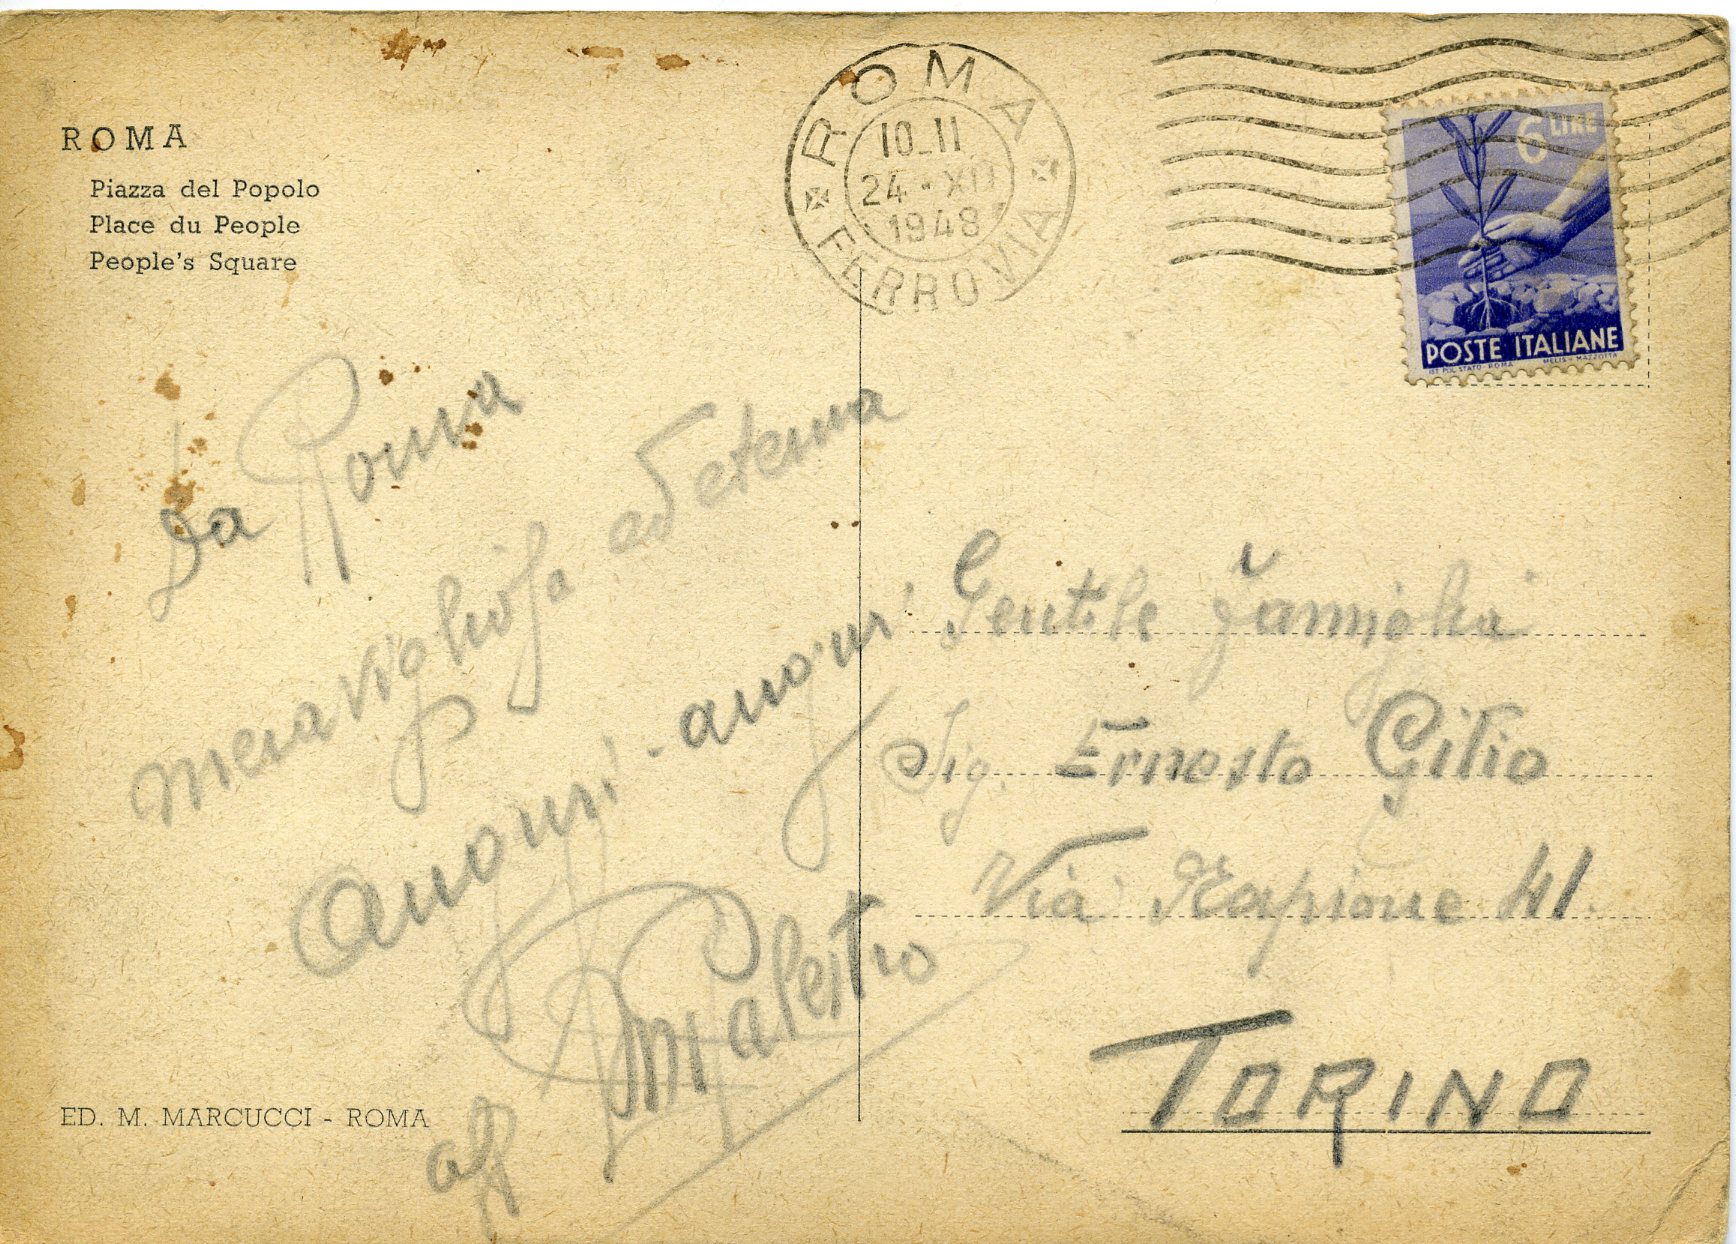 ROMA
Piazza del Popolo
Place du People
People's Square
ROMA
10-11
24-XII
1948
FERROVIA
6 LIRE
POSTE ITALIANE
IST. POL. STATO - ROMA MELIS - MAZZOTTA
Da Roma
meravigliosa ed eterna
Auguri - auguri
aff
Gentile Famiglia
Sig. Ernesto Gitio
Via 41.
TORINO
ED. M. MARCUCCI - ROMA